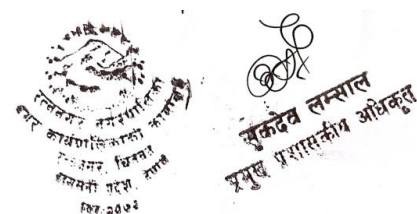 रत्ननगर नगरपालिका
नगर कार्यपालिकाको कार्यालय
चितवन
प्रदेश, नेपाल
सुकदेव लम्साल
प्रमुख प्रशासकीय अधिकृत